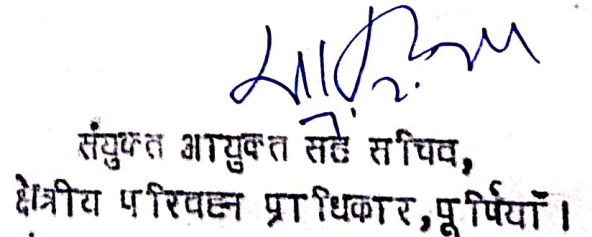 संयुक्त आयुक्त सह सचिव,
क्षेत्रीय परिवहन प्राधिकार, पूर्णियाँ ।